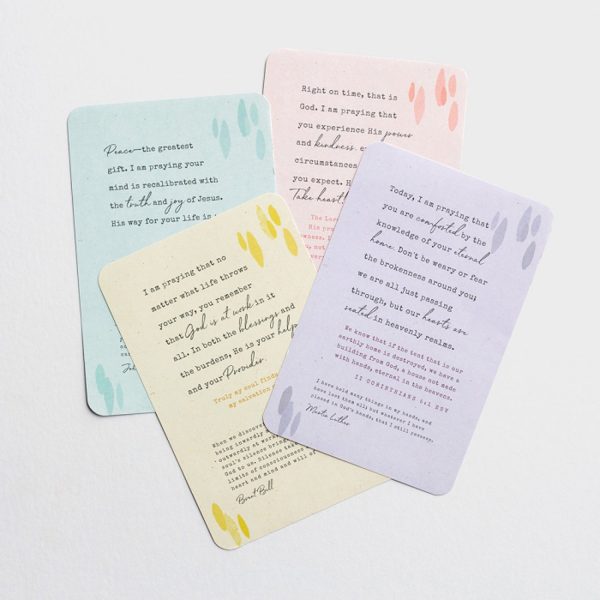 Peace—the greatest
gift. I am praying your
mind is recalibrated with
the truth and joy of Jesus.
His way for your life is
Right on time, that is
God. I am praying that
you experience His power
and kindness
circumstances
you expect. H
Take heart!
The Lord
His pr
you, not
I am praying that no
matter what life throws
your way, you remember
that God is at work in it
all. In both the blessings and
the burdens, He is your help
and your Provider.
Truly my soul finds
my salvation
When we discover
being inwardly
outwardly at
soul's silence
God to us. Silence
limits of consciousness
heart and mind and will of
Brent Bill
Today, I am praying that
you are comforted by the
knowledge of your eternal
home. Don't be weary or fear
the brokenness around you;
we are all just passing
through, but our hearts are
seated in heavenly realms.
We know that if the tent that is our
earthly home is destroyed, we have a
building from God, a house not made
with hands, eternal in the heavens.
II CORINTHIANS 5:1 ESV
I have held many things in my hands, and
have lost them all; but whatever I have
placed in God's hands, that I still possess.
Martin Luther